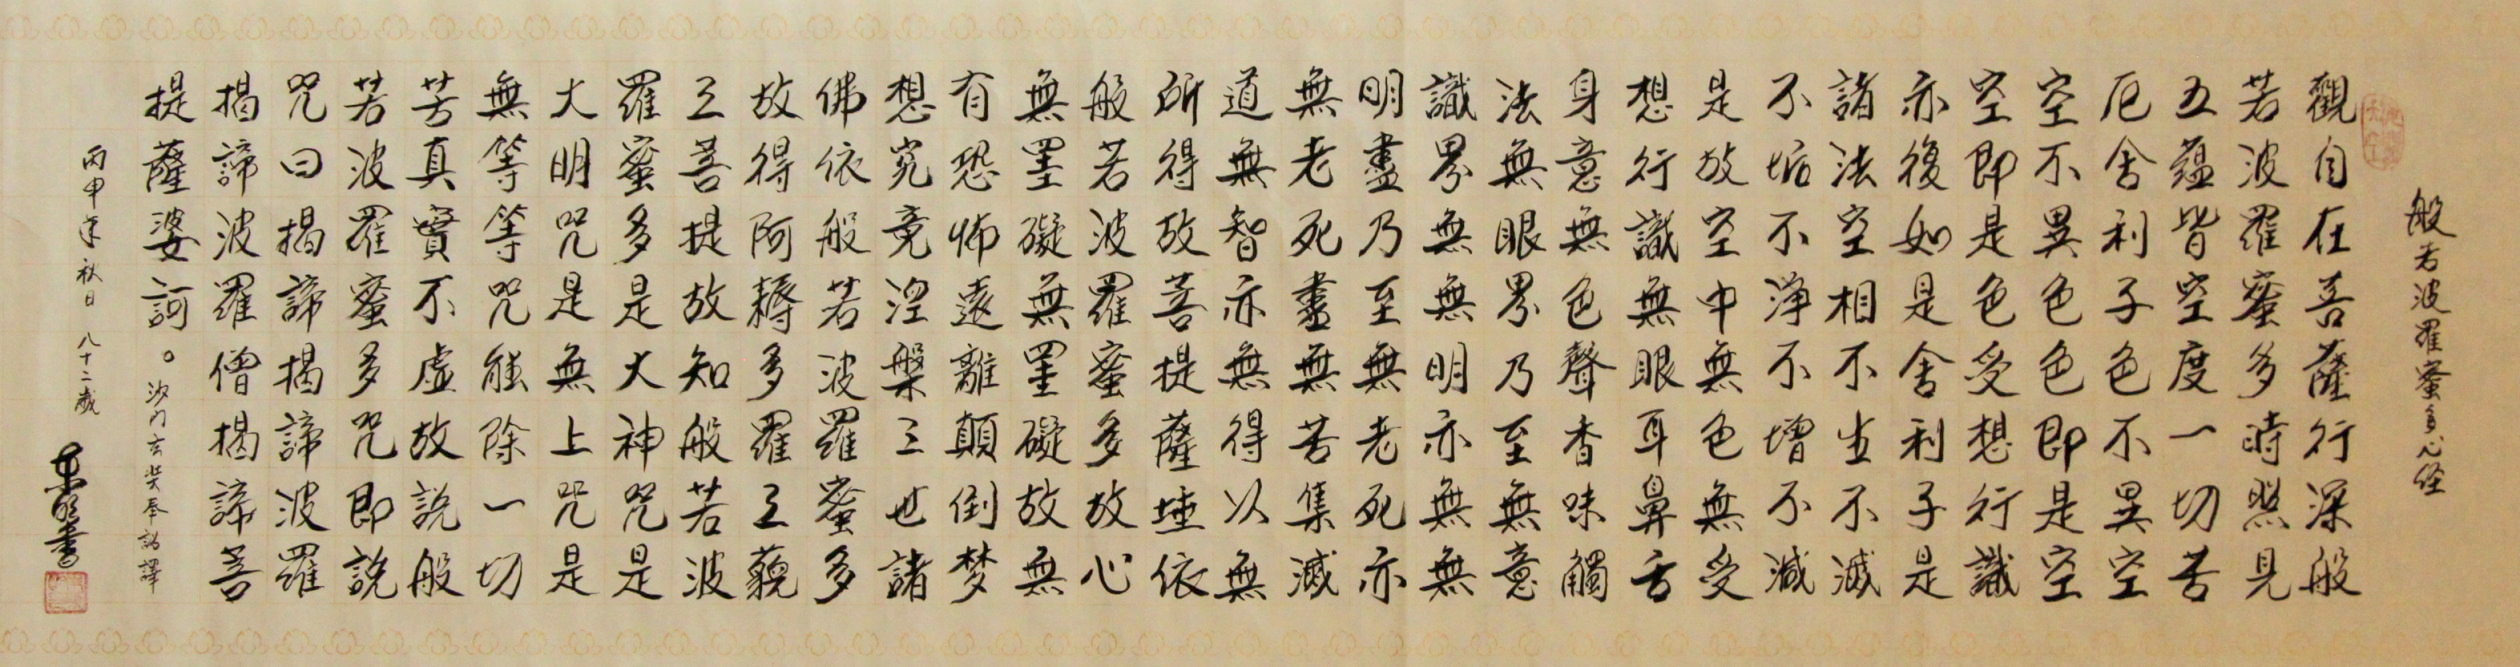 般若波羅蜜多心经
觀自在菩薩行深般
若波羅蜜多時照見
五蘊皆空度一切苦
厄舍利子色不異空
空不異色色即是空
空即是色受想行識
亦復如是舍利子是
諸法空相不生不滅
不垢不淨不增不減
是故空中無色無受
想行識無眼耳鼻舌
身意無色聲香味觸
法無眼界乃至無意
識界無無明亦無無
明盡乃至無老死亦
無老死盡無苦集滅
道無智亦無得以無
所得故菩提薩埵依
般若波羅蜜多故心
無罣礙無罣礙故無
有恐怖遠離顛倒梦
想究竟涅槃三世諸
佛依般若波羅蜜多
故得阿耨多羅三藐
三菩提故知般若波
羅蜜多是大神咒是
大明咒是無上咒是
無等等咒能除一切
苦真實不虛故說般
若波羅蜜多咒即說
咒曰揭諦揭諦波羅
揭諦波羅僧揭諦菩
提薩婆訶。沙门玄奘奉詔譯
丙申年秋日 八十二歲
書